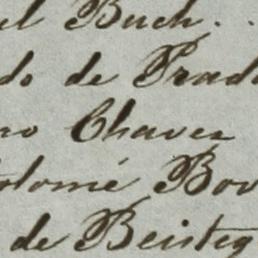 el Buch . .
do de Prad
no Chavez
tolomé Bov
de Beisteg